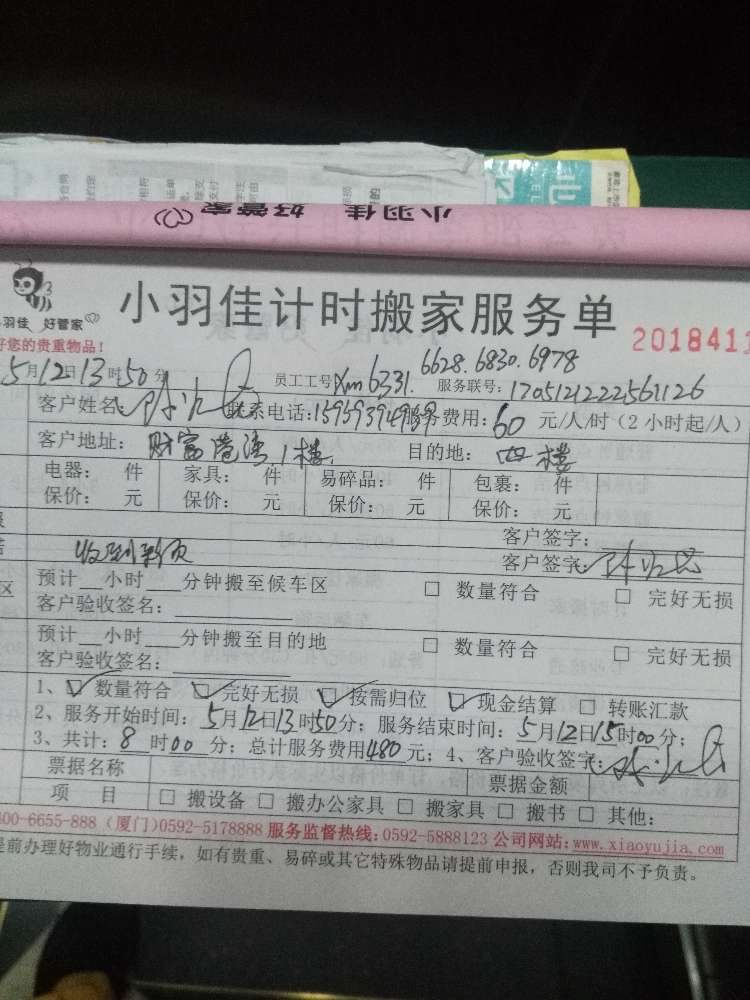 小羽佳 好管家
羽佳 好管家
小羽佳计时搬家服务单
2018411
好您的贵重物品！
5月12日13时50分 员工工号Xm6331. 6628.6830.6978 服务联号：170512122256 1126
客户姓名： 联系电话：1595939 服务费用：60 元/人/时（2小时起/人）
客户地址：财富港湾1楼. 目的地：四楼
电器： 件 家具： 件 易碎品： 件 包裹： 件
保价： 元 保价： 元 保价： 元 保价： 元
客户签字：
客户签字：
预计 小时 分钟搬至候车区 □ 数量符合 □ 完好无损
客户验收签名：
预计 小时 分钟搬至目的地 □ 数量符合 □ 完好无损
客户验收签名：
1、☑ 数量符合 ☑ 完好无损 ☑ 按需归位 ☑ 现金结算 □ 转账汇款
2、服务开始时间：5月12日13时50分；服务结束时间：5月12日15时00分；
3、共计：8 时00分；总计服务费用480元；4、客户验收签字：
票据名称 票据金额
项 目 □ 搬设备 □ 搬办公家具 □ 搬家具 □ 搬书 □ 其他：
400-6655-888 (厦门)0592-5178888 服务监督热线:0592-5888123 公司网站:www.xiaoyujia.com
提前办理好物业通行手续，如有贵重、易碎或其它特殊物品请提前申报，否则我司不予负责。